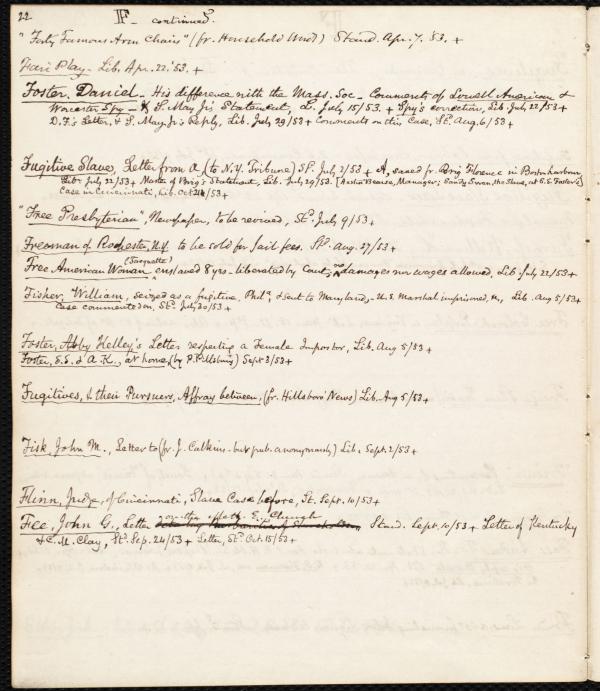 22 F - continued.
"Forty Famous Arm Chairs" (fr. Household Words) Stand. Apr. 7. 53. +
Fair Play - Lib. Apr. 22. '53. +
Foster, Daniel - His difference with the Mass. Soc - Comments of Lowell American &
Worcester Spy - S. May Jr's Statement, L. July 15/53. + Spy's correction, Lib. July 22/53 +
D. F's Letter, & S. May Jr's Reply, Lib. July 29/53 + Comments on this case, St. Aug. 6/53 +
Fugitive Slave, Letter from a (to N.Y. Tribune) St. July 2/53 + A, saved fr. Brig Florence in Boston harbour,
Lib. July 22/53 + Master of Brig's Statement, Lib. July 29/53. [Austin Bearse, Manager; Sandy Swan, the Slave,
Case in Cincinnati, Lib. Oct. /53 +
"Free Presbyterian", Newspaper, to be revived, St. July 9/53 +
Freeman of Rochester, N.Y. to be sold for Jail fees. St. Aug. 27/53 +
Free American Woman enslaved 8 yrs - liberated by Court, no damages nor wages allowed, Lib. July 22/53 +
Fisher, William, seized as a fugitive, Phila. & sent to Maryland, - U.S. Marshal imprisoned, Lib. Aug 5/53 +
Case commented on, St. July 30/53 +
Foster, Abby Kelley's Letter respecting a Female Impostor, Lib. Aug 5/53 +
Foster, S.S. & A.K., at home, (by P. Pillsbury) Sept 3/53 +
Fugitives, & their Pursuers, Affray between, (fr. Hillsboro' News) Lib. Aug 5/53 +
Fisk, John M., Letter to (fr. J. Calkins - but pub. anonymously) Lib. Sept. 2/53 +
Flinn, Judge, of Cincinnati, Slave Case before, St. Sept. 10/53 +
Fee, John G., Letter on the Meth. E. Church Stand. Sept. 10/53 + Letter of Kentucky
& C. M. Clay, St. Sep. 24/53 + Letter, St. Oct. 15/53 +